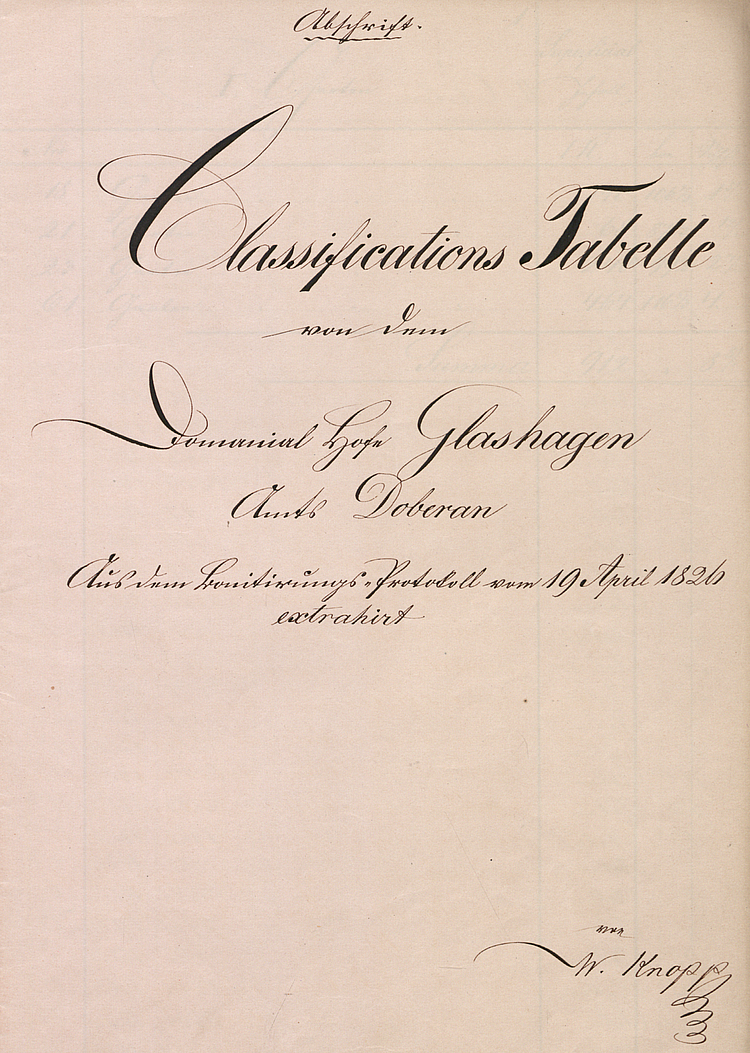 Abschrift.
Classifications Tabelle
von dem
Domanial Hofe Glashagen
Amts Doberan
Aus dem Bonitirungs-Protokoll vom 19 April 1826
extrahirt
von
W. Knopp